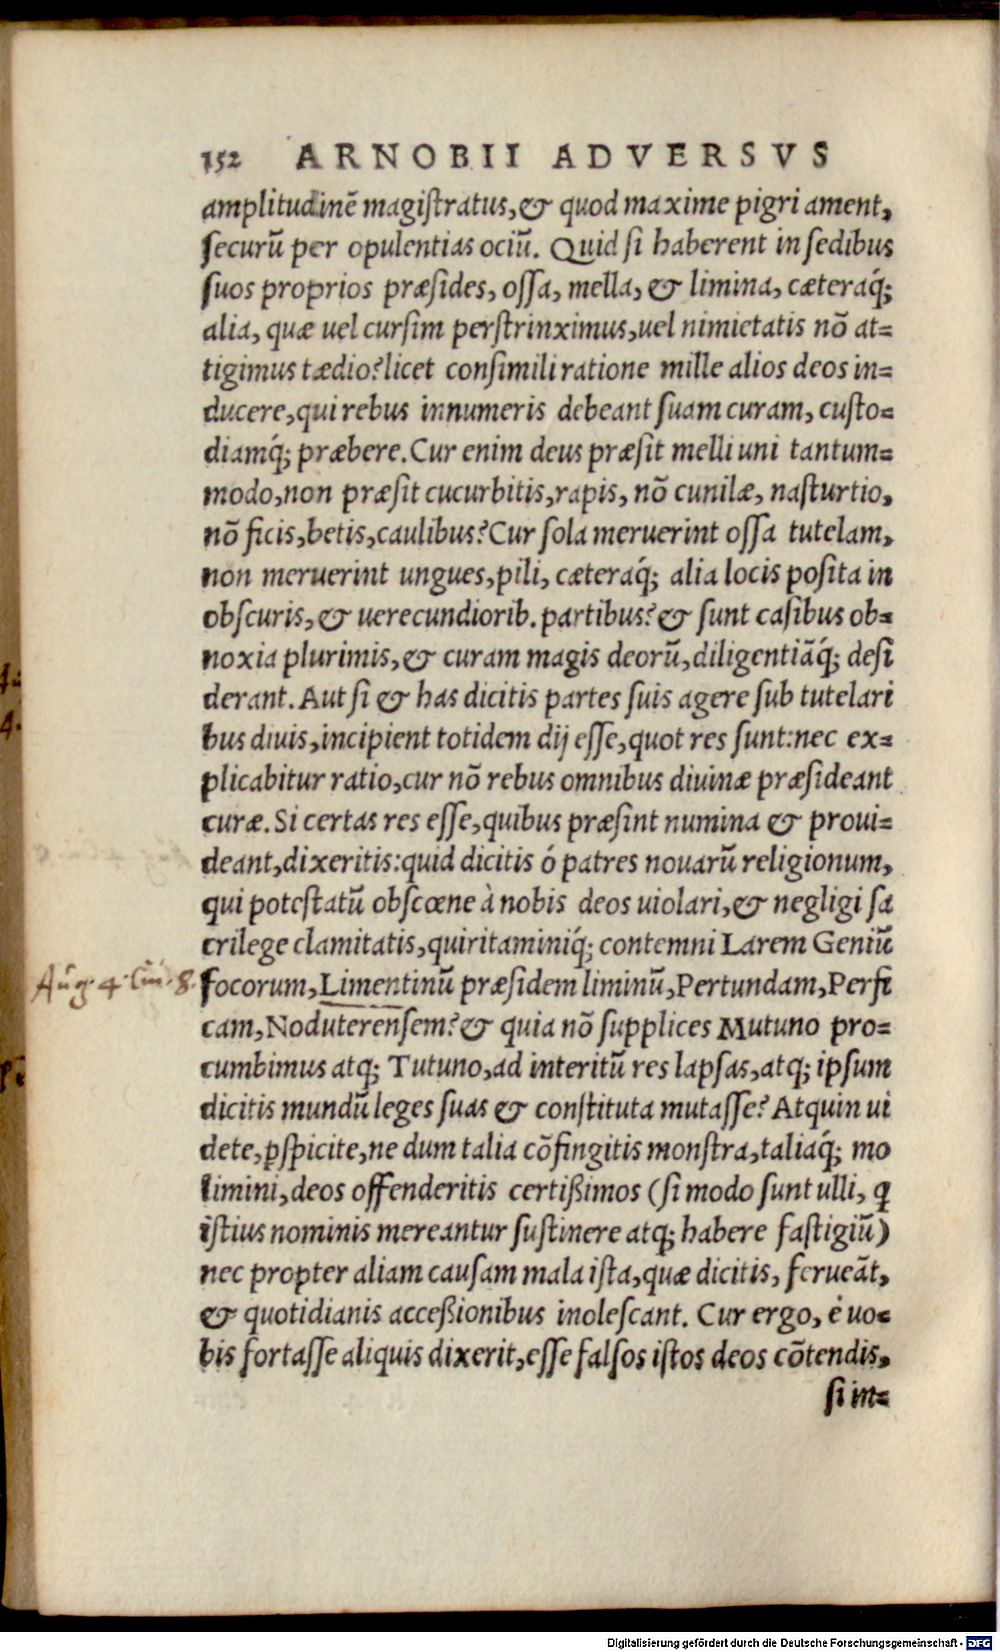 152 ARNOBII ADVERSVS
amplitudinē magiſtratus, & quod maxime pigri ament,
ſecurū per opulentias ociū. Quid ſi haberent in ſedibus
ſuos proprios præſides, oſſa, mella, & limina, cæteraq́;
alia, quæ uel curſim perſtrinximus, uel nimietatis nō at=
tigimus tædio? licet conſimili ratione mille alios deos in=
ducere, qui rebus innumeris debeant ſuam curam, cuſto=
diamq́; præbere. Cur enim deus præſit melli uni tantum=
modo, non præſit cucurbitis, rapis, nō cunilæ, naſturtio,
nō ficis, betis, caulibus? Cur ſola meruerint oſſa tutelam,
non meruerint ungues, pili, cæteraq́; alia locis poſita in
obſcuris, & uerecundiorib. partibus? & ſunt caſibus ob=
noxia plurimis, & curam magis deorū, diligentiāq́; deſi
derant. Aut ſi & has dicitis partes ſuis agere ſub tutelari
bus diuis, incipient totidem dij eſſe, quot res ſunt: nec ex=
plicabitur ratio, cur nō rebus omnibus diuinæ præſideant
curæ. Si certas res eſſe, quibus præſint numina & proui=
deant, dixeritis: quid dicitis ó patres nouarū religionum,
qui poteſtatū obſcœne à nobis deos uiolari, & negligi ſa
crilege clamitatis, quiritaminiq́; contemni Larem Geniū
Aug. 4. Ciui. 8. focorum, Limentinū præſidem liminū, Pertundam, Perfi
cam, Noduterenſem? & quia nō ſupplices Mutuno pro=
cumbimus atq; Tutuno, ad interitū res lapſas, atq; ipſum
dicitis mundū leges ſuas & conſtituta mutaſſe? Atquin ui
dete, ꝑſpicite, ne dum talia cōfingitis monſtra, taliaq́; mo
limini, deos offenderitis certißimos (ſi modo ſunt ulli, q
iſtius nominis mereantur ſuſtinere atq; habere faſtigiū)
nec propter aliam cauſam mala iſta, quæ dicitis, ferueāt,
& quotidianis acceßionibus inoleſcant. Cur ergo, è uo=
bis fortaſſe aliquis dixerit, eſſe falſos iſtos deos cōtendis,
ſi in=
Digitalisierung gefördert durch die Deutsche Forschungsgemeinschaft - DFG